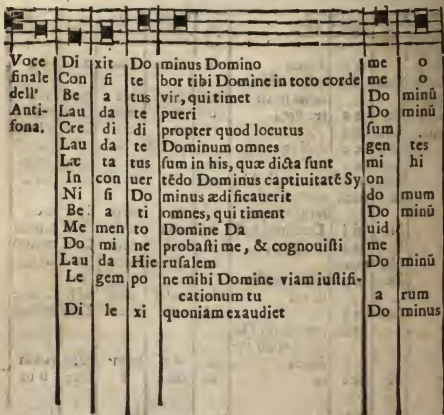 Voce Di xit Do minus Domino me o
finale Con fi te bor tibi Domine in toto corde me o
dell' Be a tus vir, qui timet Do minū
Anti- Lau da te pueri Do minū
fona. Cre di di propter quod locutus ſum
Lau da te Dominum omnes gen tes
Læ ta tus ſum in his, quæ dicta ſunt mi hi
In con uer tēdo Dominus captiuitatē Sy on
Ni ſi Do minus ædificauerit do mum
Be a ti omnes, qui timent Do minū
Me men to Domine Da uid.
Do mi ne probaſti me, & cognouiſti me
Lau da Hie ruſalem Do minū
Le gem po ne mihi Domine viam iuſtifi-
cationum tu a rum
Di le xi quoniam exaudiet Do minus